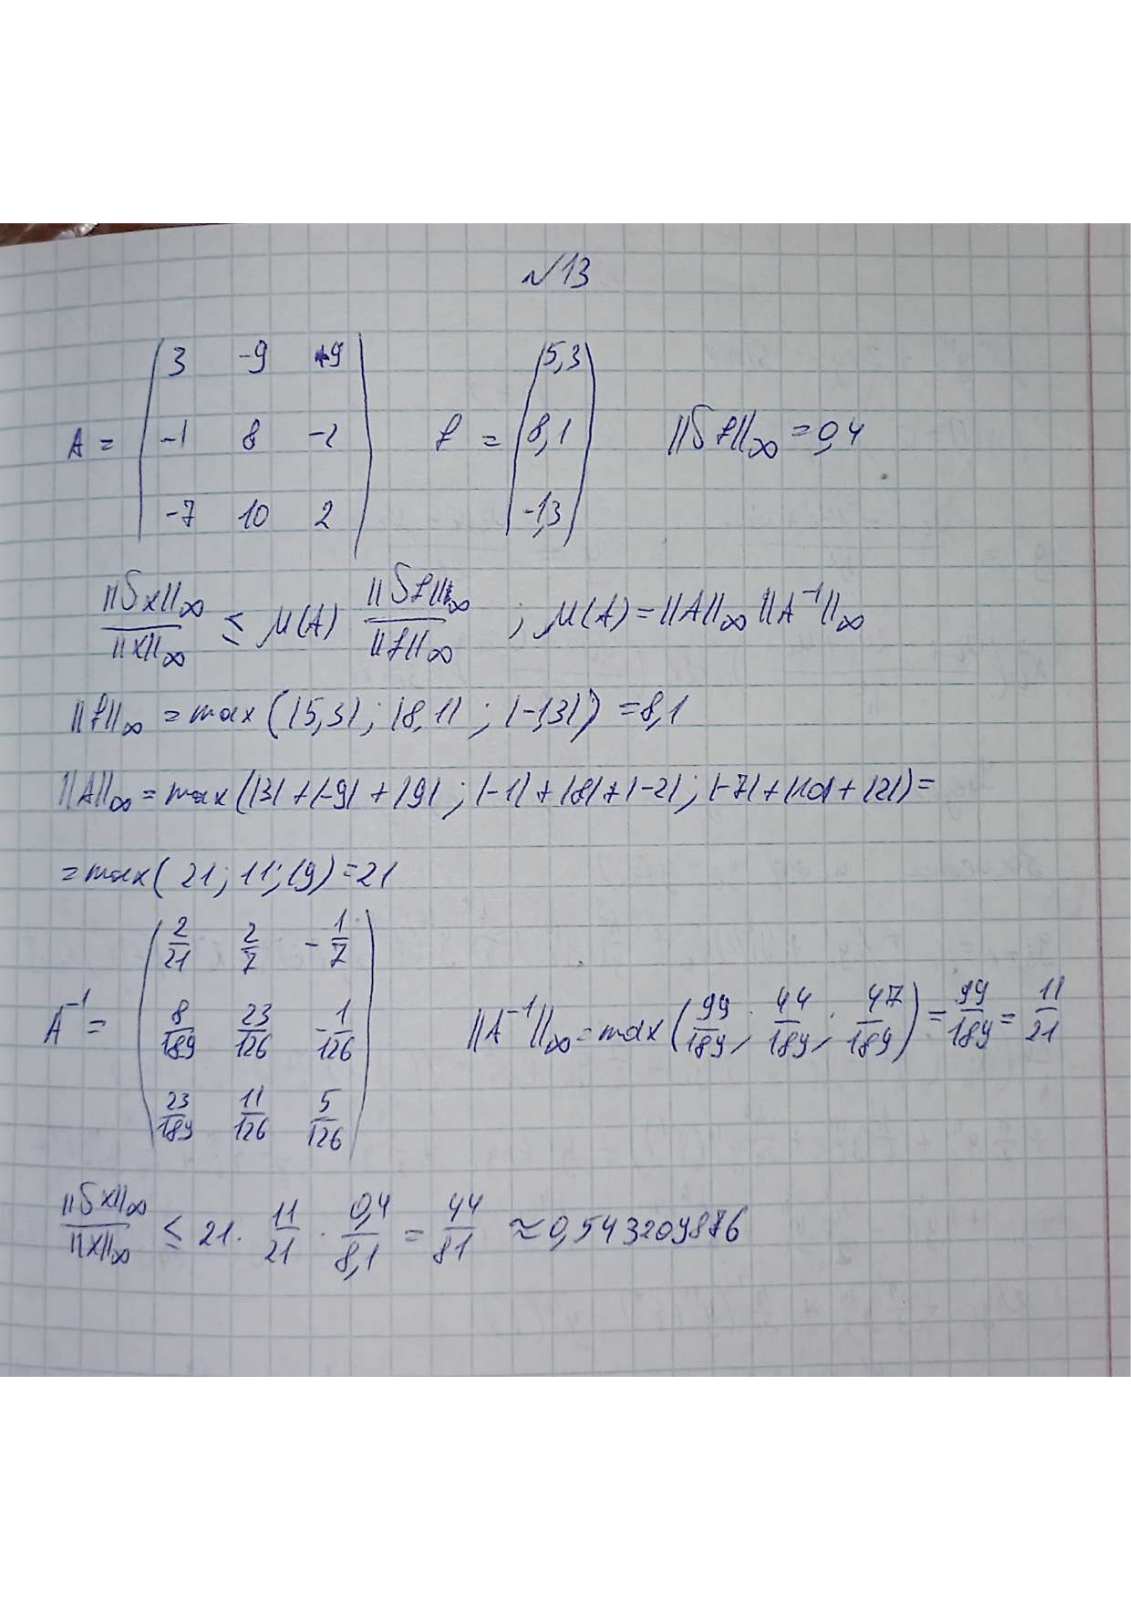 №13
A = (3 -9 +9; -1 8 -2; -7 10 2) f = (5,3; 8,1; -1,3) ||δf||∞ = 0,4
||δx||∞ / ||x||∞ ≤ μ(A) ||δf||∞ / ||f||∞ ; μ(A) = ||A||∞ ||A⁻¹||∞
||f||∞ = max(|5,3|; |8,1|; |-1,3|) = 8,1
||A||∞ = max(|3|+|-9|+|9|; |-1|+|8|+|-2|; |-7|+|10|+|2|) =
= max(21; 11; 19) = 21
A⁻¹ = (2/21 2/7 -1/7; 8/189 23/126 -1/126; 23/189 11/126 5/126) ||A⁻¹||∞ = max(99/189; 44/189; 47/189) = 99/189 = 11/21
||δx||∞ / ||x||∞ ≤ 21 · 11/21 · 0,4/8,1 = 44/81 ≈ 0,543209876